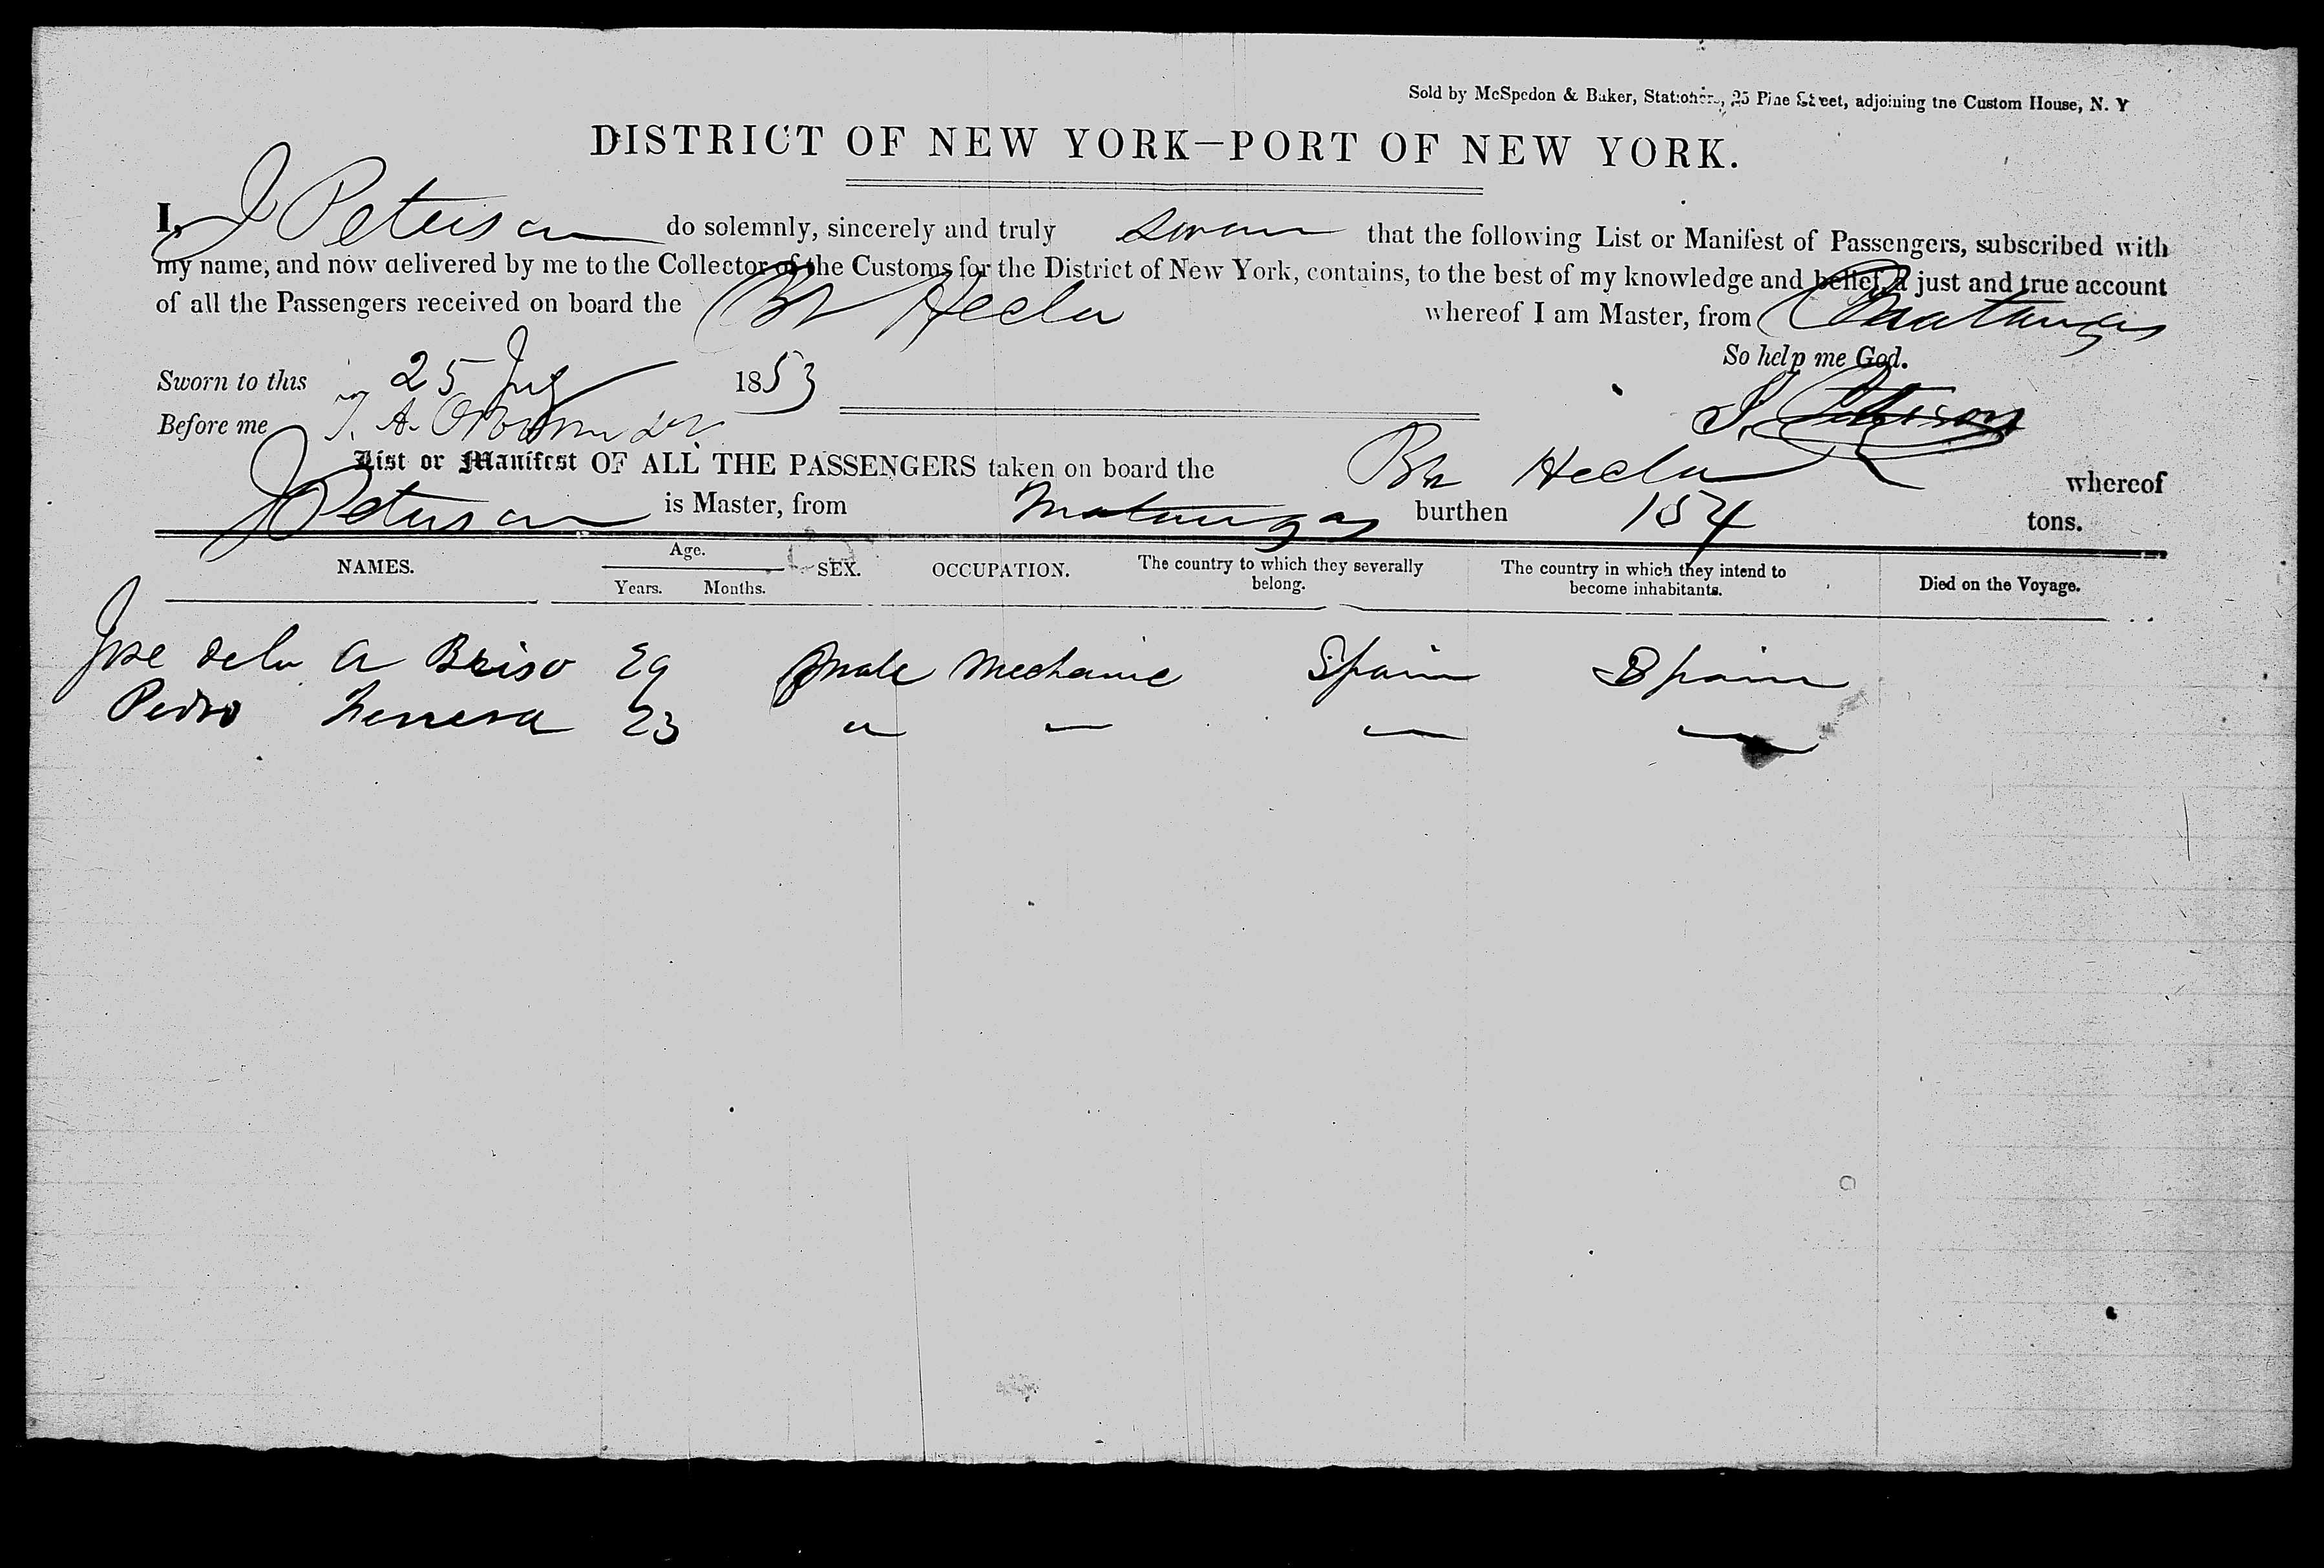 Sold by McSpedon & Baker, Stationers, 25 Pine Street, adjoining the Custom House, N. Y
DISTRICT OF NEW YORK—PORT OF NEW YORK.
I, J Peterson do solemnly, sincerely and truly swear that the following List or Manifest of Passengers, subscribed with
my name, and now delivered by me to the Collector of the Customs for the District of New York, contains, to the best of my knowledge and belief, a just and true account
of all the Passengers received on board the Br Hecla whereof I am Master, from Matanzas
So help me God.
Sworn to this 25 1853
J. Peterson
Before me T. A.
List or Manifest OF ALL THE PASSENGERS taken on board the Br Hecla whereof
J Peterson is Master, from Matanzas burthen 154 tons.
NAMES. Age. Years. Months. SEX. OCCUPATION. The country to which they severally belong. The country in which they intend to become inhabitants. Died on the Voyage.
Jose dela a Briso 29 male Mechanic Spain Spain
Pedro 23 " — — —